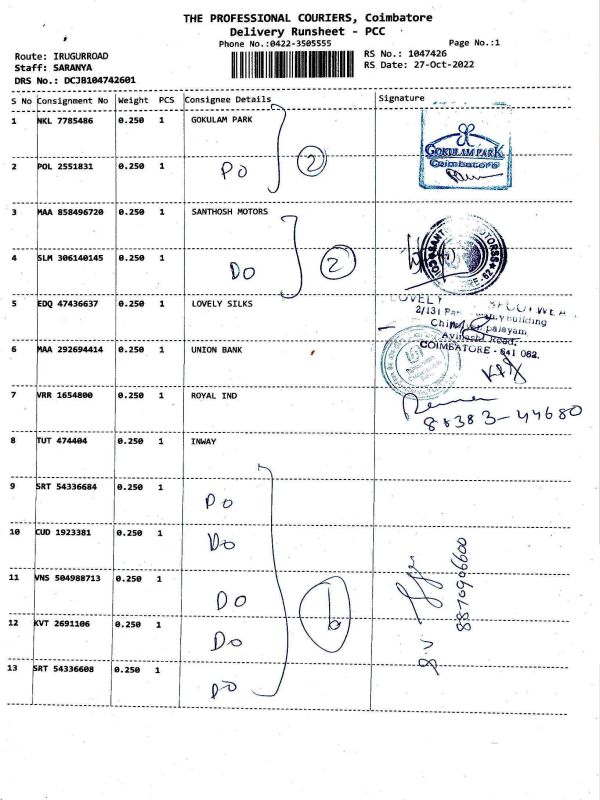 THE PROFESSIONAL COURIERS, Coimbatore
Delivery Runsheet - PCC
Phone No.:0422-3505555 Page No.:1
Route: IRUGURROAD RS No.: 1047426
Staff: SARANYA RS Date: 27-Oct-2022
DRS No.: DCJB104742601
S No Consignment No Weight PCS Consignee Details Signature
1 NKL 7785486 0.250 1 GOKULAM PARK
GOKULAM PARK
Coimbatore
2 POL 2551831 0.250 1 DO 2
3 MAA 858496720 0.250 1 SANTHOSH MOTORS
4 SLM 306140145 0.250 1 DO 2
5 EDQ 47436637 0.250 1 LOVELY SILKS
LOVELY
2/131
building
palayam,
Road,
COIMBATORE - 641 062.
6 MAA 292694414 0.250 1 UNION BANK
7 VRR 1654800 0.250 1 ROYAL IND
88383-44680
8 TUT 474404 0.250 1 INWAY
9 SRT 54336684 0.250 1 DO
10 CUD 1923381 0.250 1 DO
11 VNS 504988713 0.250 1 DO
12 KVT 2691106 0.250 1 DO
13 SRT 54336608 0.250 1 DO
8870906600